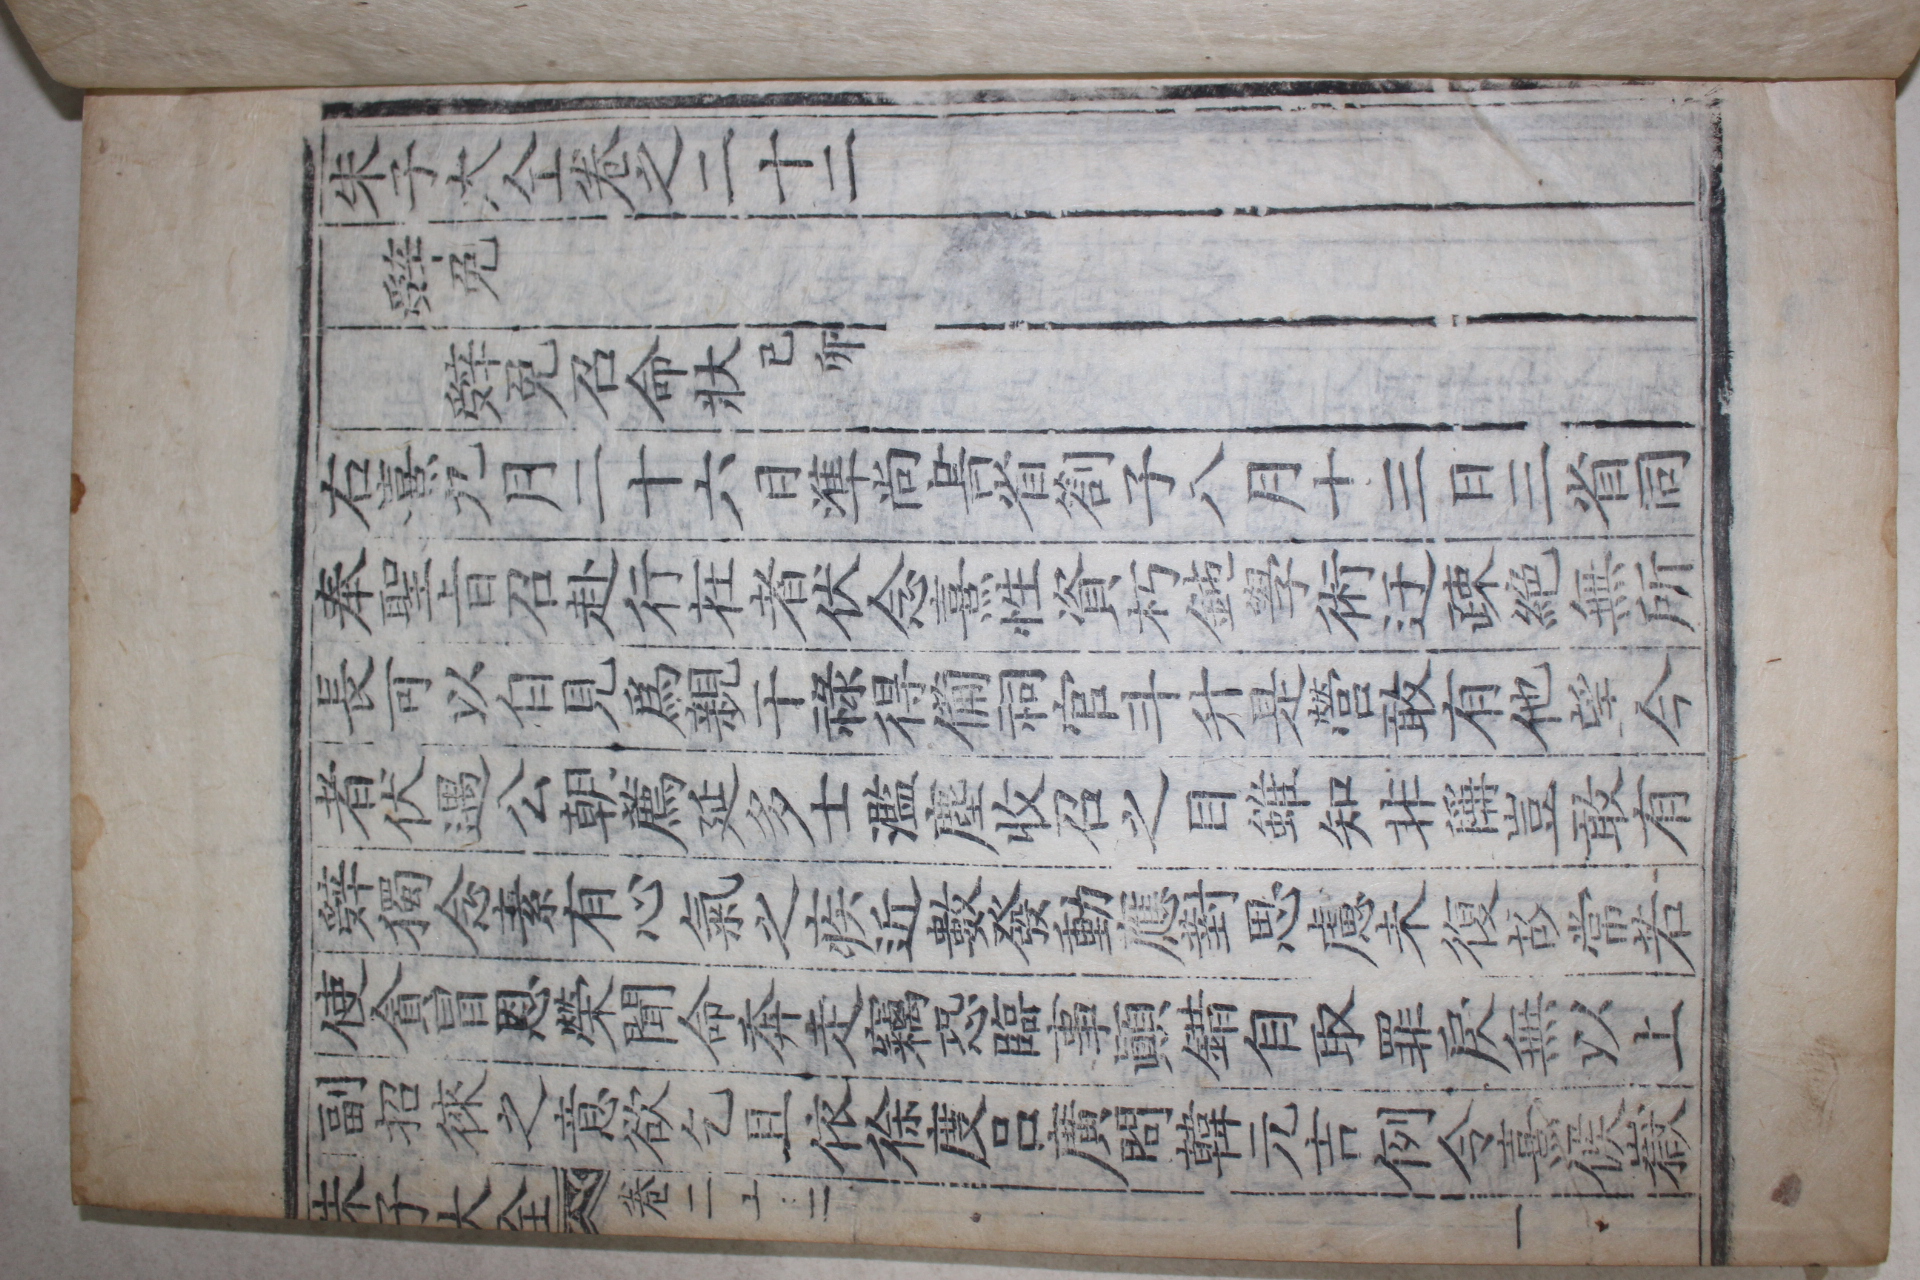 朱子大全卷之二十二
辭免
辭免召命狀己卯
右熹九月二十六日準尚書省劄子八月十三日三省同
奉聖旨召赴行在者伏念熹性資朽鈍學術迂疎絕無所
長可以自見爲親干祿得備祠官斗升是營敢有他望今
者伏遇公朝薦延多士濫塵收召之目雖知非偁豈敢有
辭獨念素有心氣之疾近數發動應對思慮未復故常若
使貪冒恩榮聞命奔走竊恐臨事顚錯自取罪戾無以上
副招徠之意欲乞且依徐度呂廣問韓元吉例令熹候嶽
朱子大全 卷二十二 一